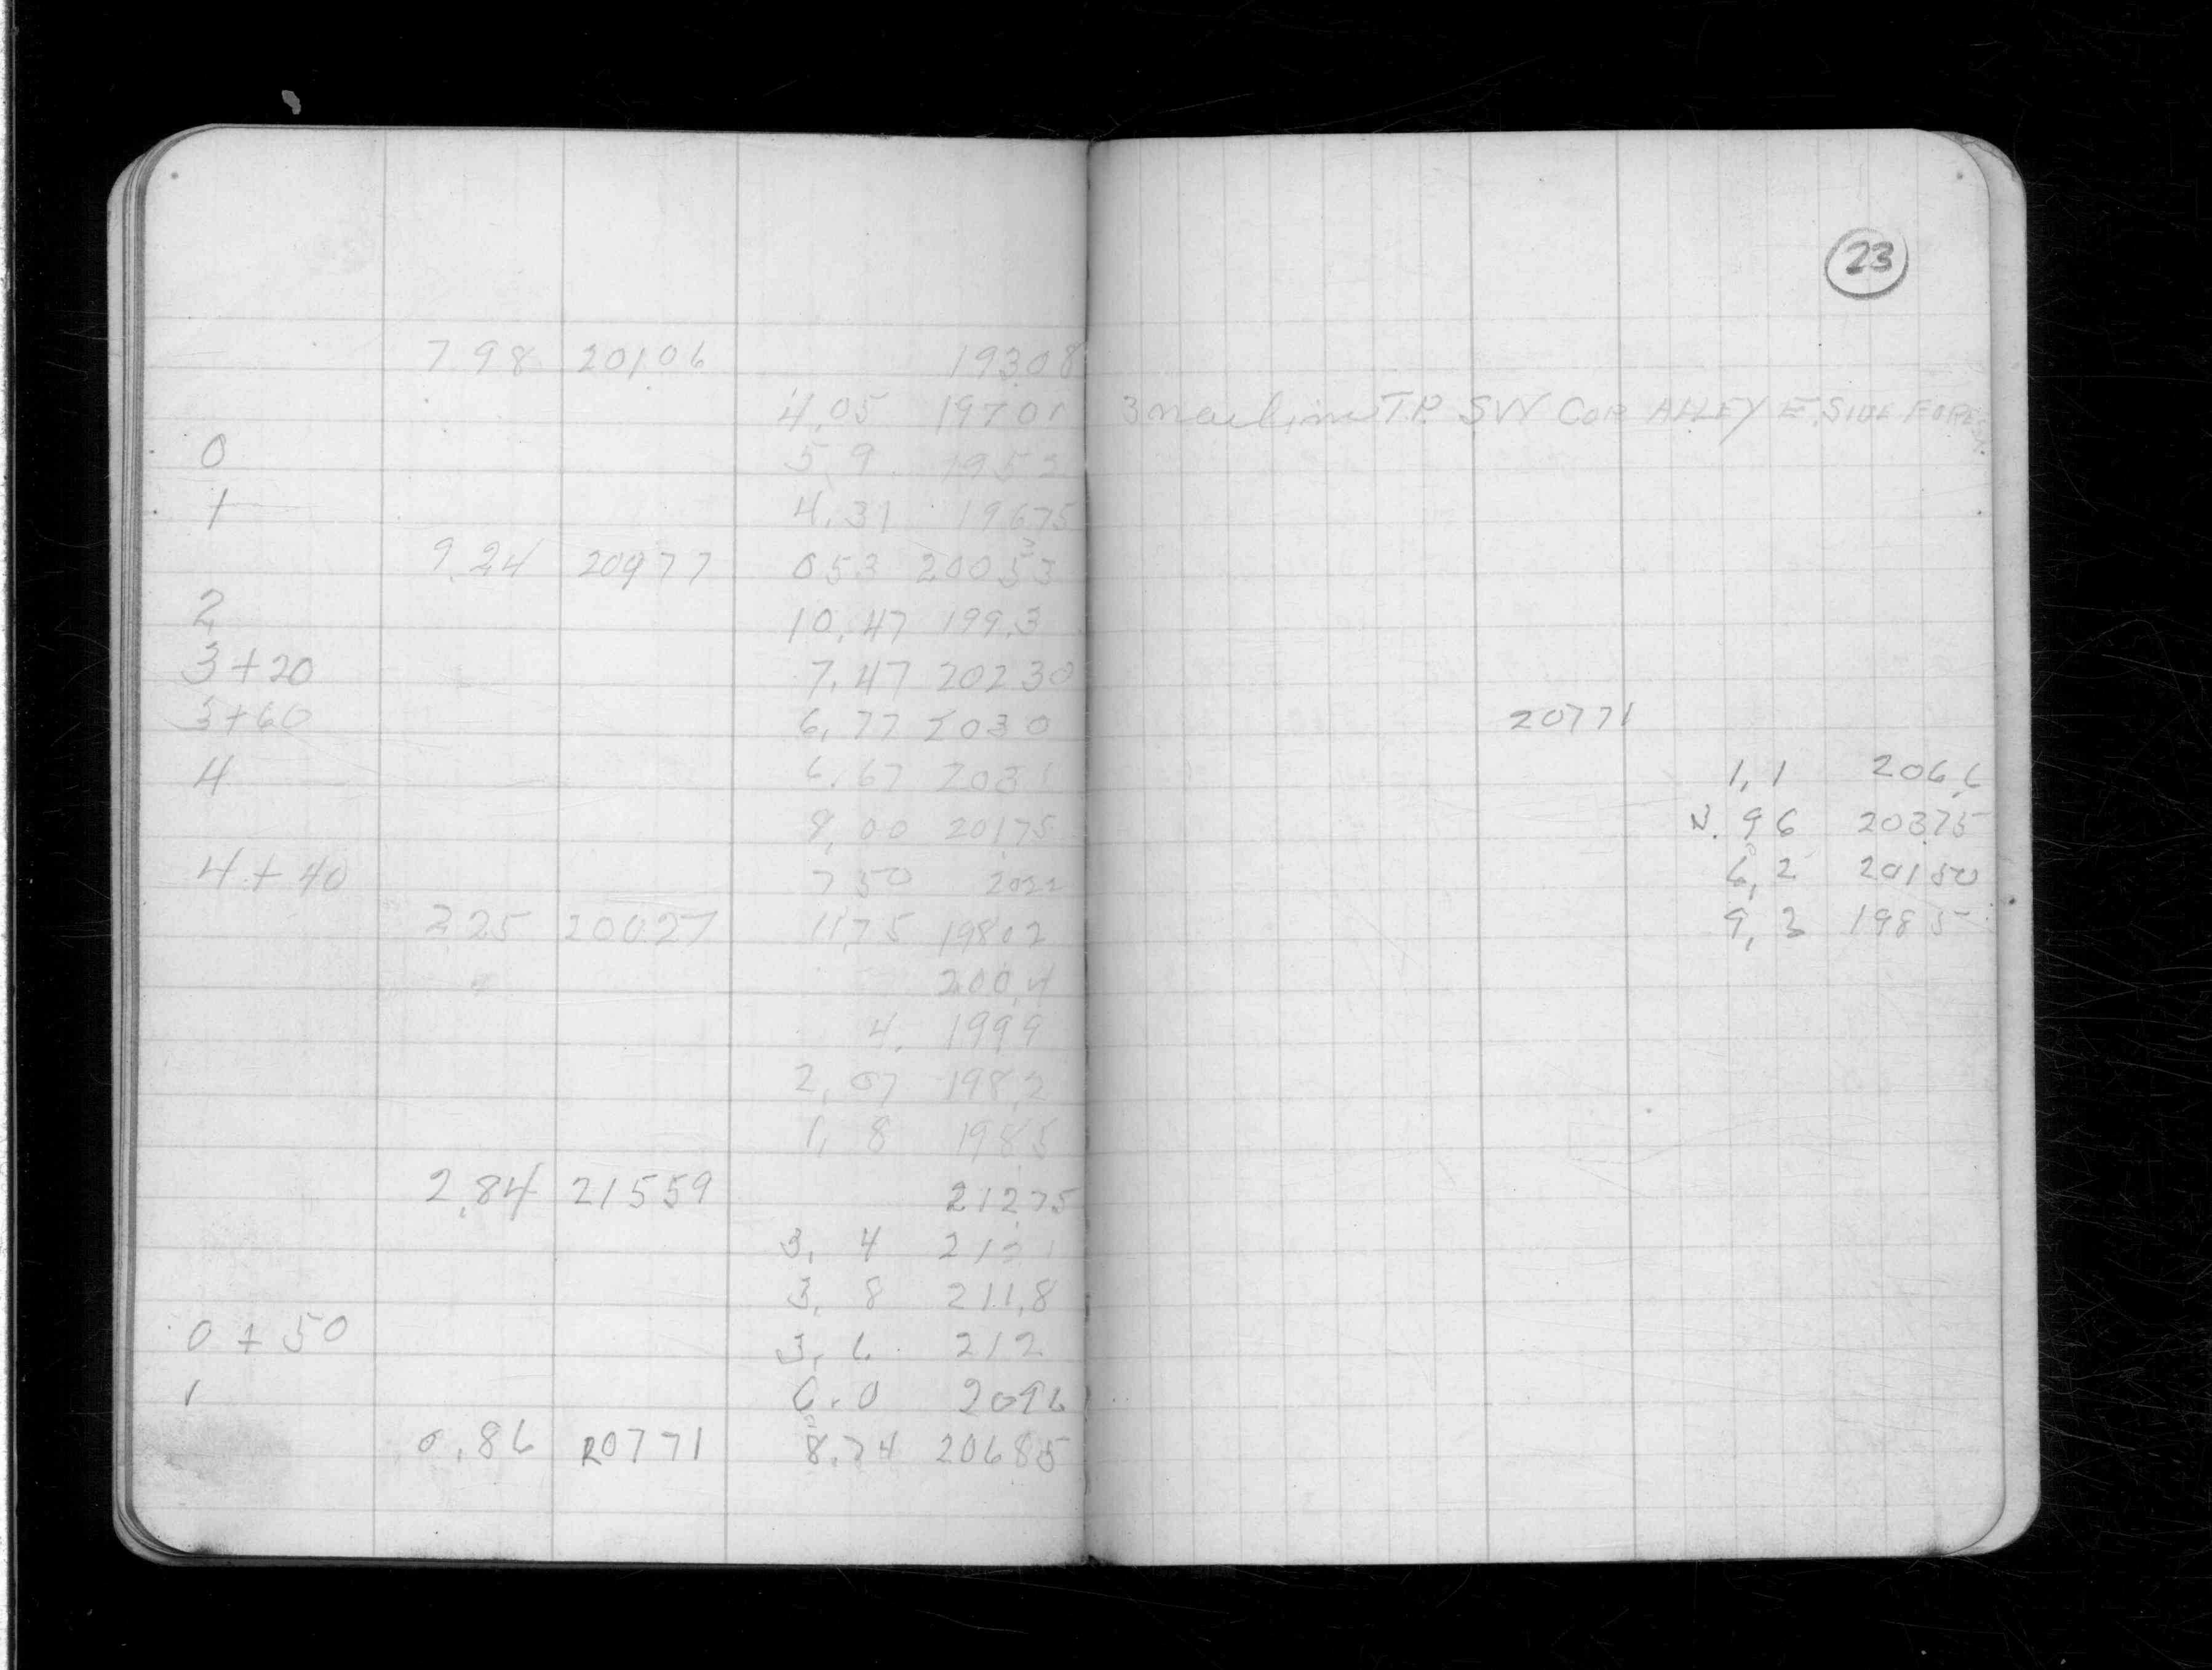 23
7.98 20106 19308
4.05 19701 T.P. SW COR ALLEY E. SIDE
0 5.9 1953
1 4.31 19675
9.24 20977 053 20053
2 10.47 199.3
3+20 7.47 20230
3+60 6.77 2030 20771
4 6.67 2031 1,1 206,6
9,00 20175 3.96 20375
4+40 750 2022 6,2 20150
225 20027 1175 19802 9,3 1985
200,4
4. 1999
2,07 198,2
1,8 1985
2.84 21559 21275
3,4
3,8 211,8
0+50 3,6 212
1 6.0 2096
0.86 20771 8.74 20685